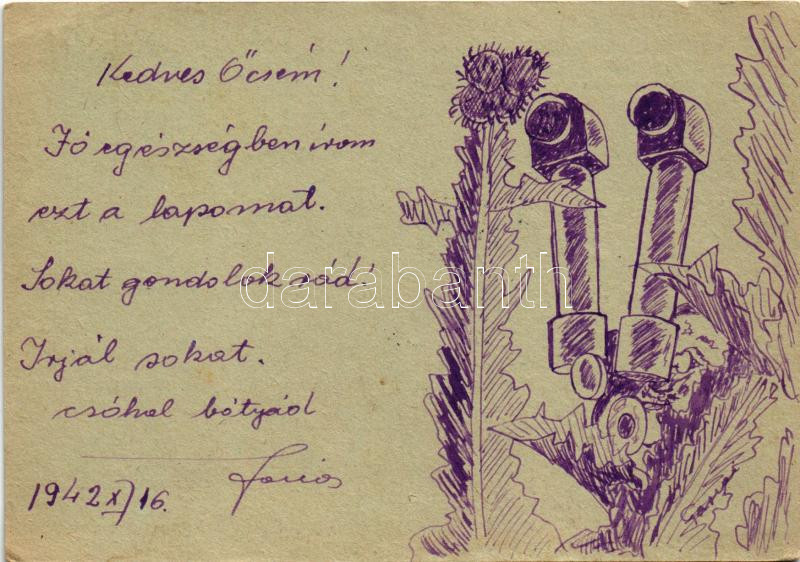 Kedves Őcsém!
Jó egészségben írom
ezt a lapomat.
Sokat gondolok rád!
Irjál sokat.
csókol bátyád
1942 XI/16.
darabanth